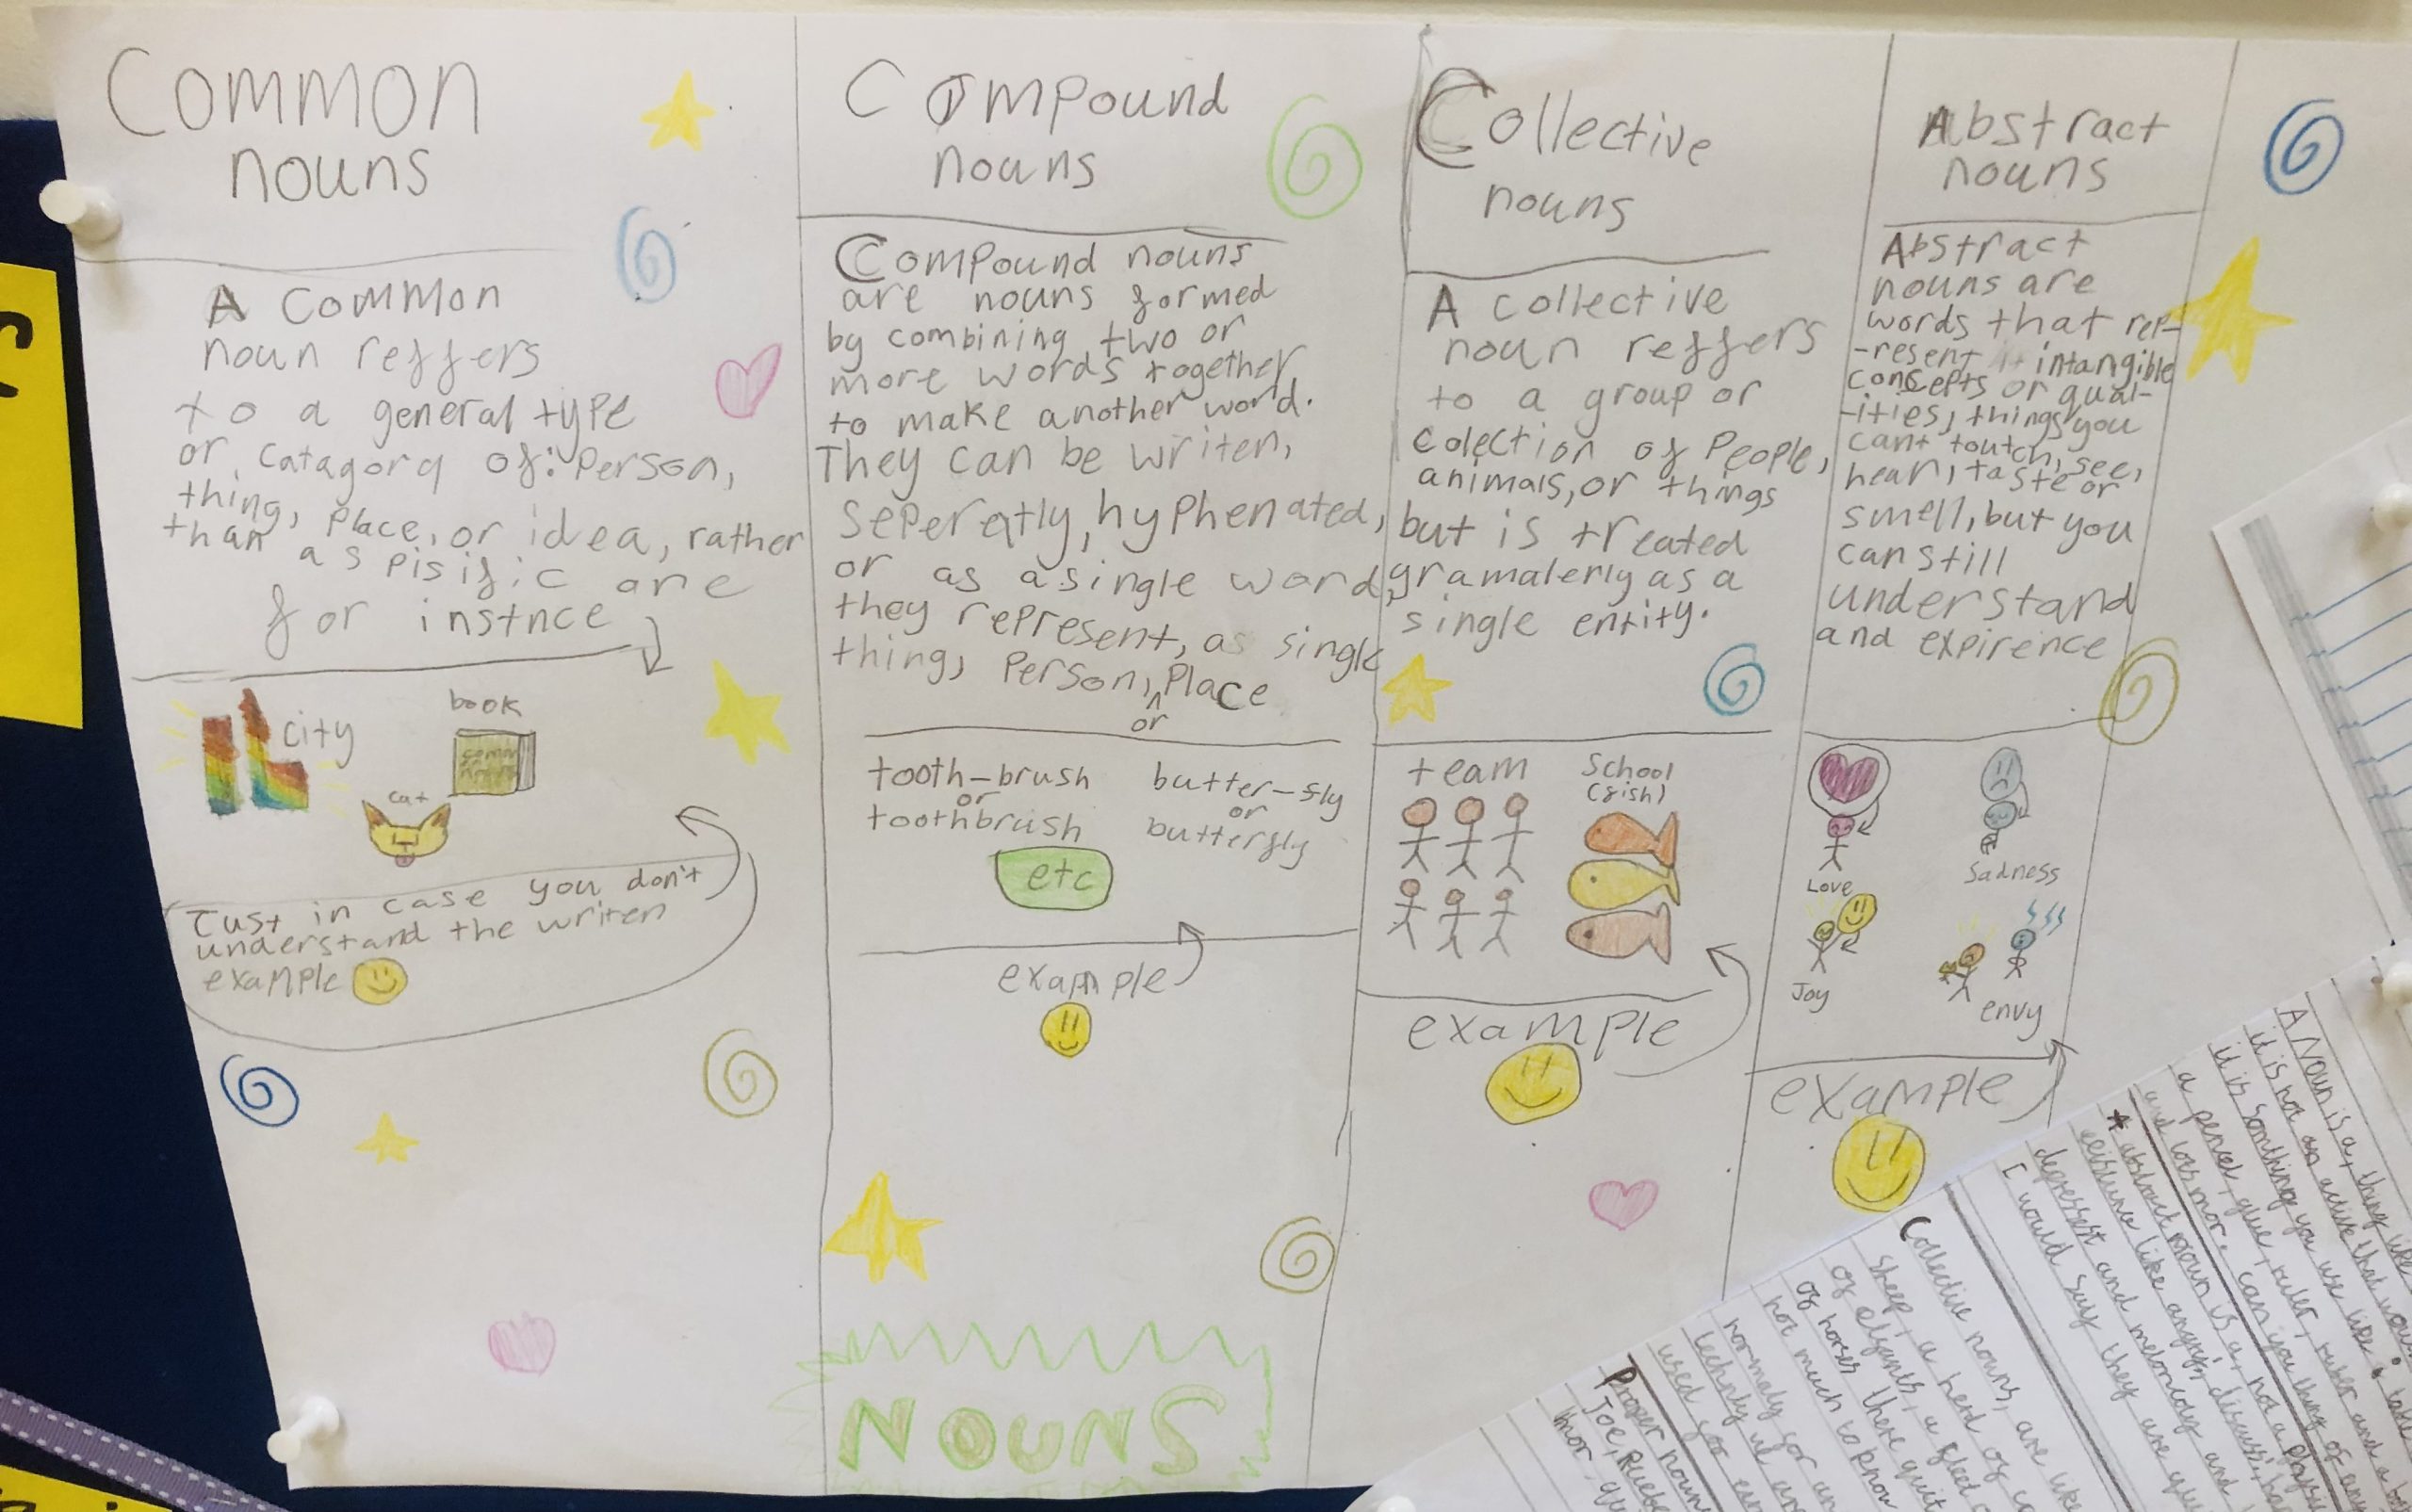 Common
nouns
A Common
noun reffers
to a general type
or catagory of: Person,
thing, Place, or idea, rather
than a spisific are
for instnce
city
book
cat
Just in case you don't
understand the writen
example
Compound
nouns
Compound nouns
are nouns formed
by combining two or
more words together
to make another word.
They can be writen,
seperatly, hyphenated,
or as a single word,
they represent, as single
thing, Person, Place
or
tooth-brush
or
toothbrush
butter-fly
or
butterfly
etc
example
NOUNS
Collective
nouns
A collective
noun reffers
to a group or
colection of People,
animals, or things
but is treated
gramalerly as a
single entity.
team
School
(fish)
example
Abstract
nouns
Abstract
nouns are
words that rep-
-resent intangible
concepts or qual-
-ities, things you
cant toutch, see,
hear, taste or
smell, but you
can still
understand
and expirence
Love
Sadness
Joy
envy
example
A Noun is a, thing like
it is not an active that
it is somthing you use like a
a pencil, glue, ruler, ruber and a
and lots mor. can you thing of
A abstract noun is a, not a
like angry,
depresset and meloncoly and
I would say they are
Collective nouns, are like
Sheep, a herd of
of elifants, a fleet
of horses there
not much to know
normaly for
used for
Proper noun
Joe,